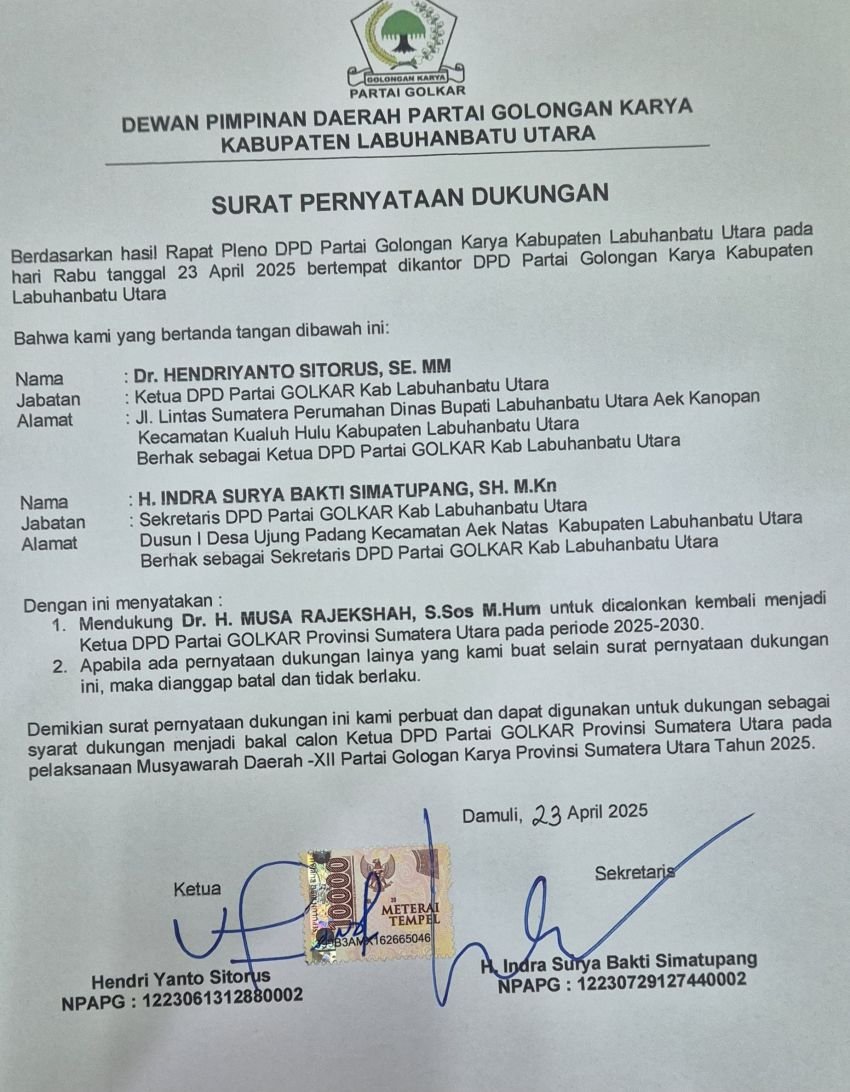 GOLONGAN KARYA
PARTAI GOLKAR
DEWAN PIMPINAN DAERAH PARTAI GOLONGAN KARYA
KABUPATEN LABUHANBATU UTARA
SURAT PERNYATAAN DUKUNGAN
Berdasarkan hasil Rapat Pleno DPD Partai Golongan Karya Kabupaten Labuhanbatu Utara pada
hari Rabu tanggal 23 April 2025 bertempat dikantor DPD Partai Golongan Karya Kabupaten
Labuhanbatu Utara
Bahwa kami yang bertanda tangan dibawah ini:
Nama : Dr. HENDRIYANTO SITORUS, SE. MM
Jabatan : Ketua DPD Partai GOLKAR Kab Labuhanbatu Utara
Alamat : Jl. Lintas Sumatera Perumahan Dinas Bupati Labuhanbatu Utara Aek Kanopan
Kecamatan Kualuh Hulu Kabupaten Labuhanbatu Utara
Berhak sebagai Ketua DPD Partai GOLKAR Kab Labuhanbatu Utara
Nama : H. INDRA SURYA BAKTI SIMATUPANG, SH. M.Kn
Jabatan : Sekretaris DPD Partai GOLKAR Kab Labuhanbatu Utara
Alamat Dusun I Desa Ujung Padang Kecamatan Aek Natas Kabupaten Labuhanbatu Utara
Berhak sebagai Sekretaris DPD Partai GOLKAR Kab Labuhanbatu Utara
Dengan ini menyatakan :
1. Mendukung Dr. H. MUSA RAJEKSHAH, S.Sos M.Hum untuk dicalonkan kembali menjadi
Ketua DPD Partai GOLKAR Provinsi Sumatera Utara pada periode 2025-2030.
2. Apabila ada pernyataan dukungan lainya yang kami buat selain surat pernyataan dukungan
ini, maka dianggap batal dan tidak berlaku.
Demikian surat pernyataan dukungan ini kami perbuat dan dapat digunakan untuk dukungan sebagai
syarat dukungan menjadi bakal calon Ketua DPD Partai GOLKAR Provinsi Sumatera Utara pada
pelaksanaan Musyawarah Daerah -XII Partai Gologan Karya Provinsi Sumatera Utara Tahun 2025.
Damuli, 23 April 2025
Ketua
Sekretaris
10000
METERAI
TEMPEL
B3AMX162665046
Hendri Yanto Sitorus
NPAPG : 1223061312880002
H. Indra Surya Bakti Simatupang
NPAPG : 12230729127440002